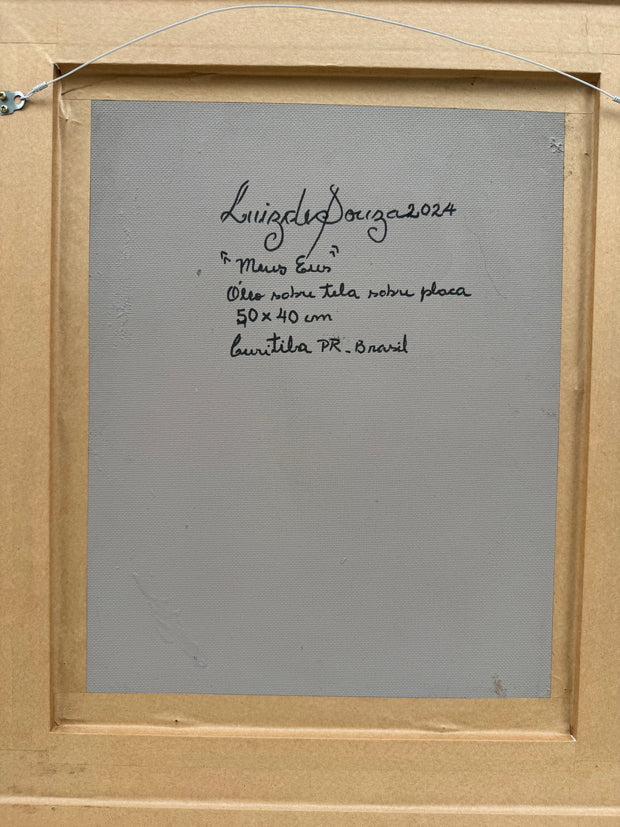 Luiz de Souza 2024
"Meus Eus"
Óleo sobre tela sobre placa
50 x 40 cm
Curitiba PR - Brasil